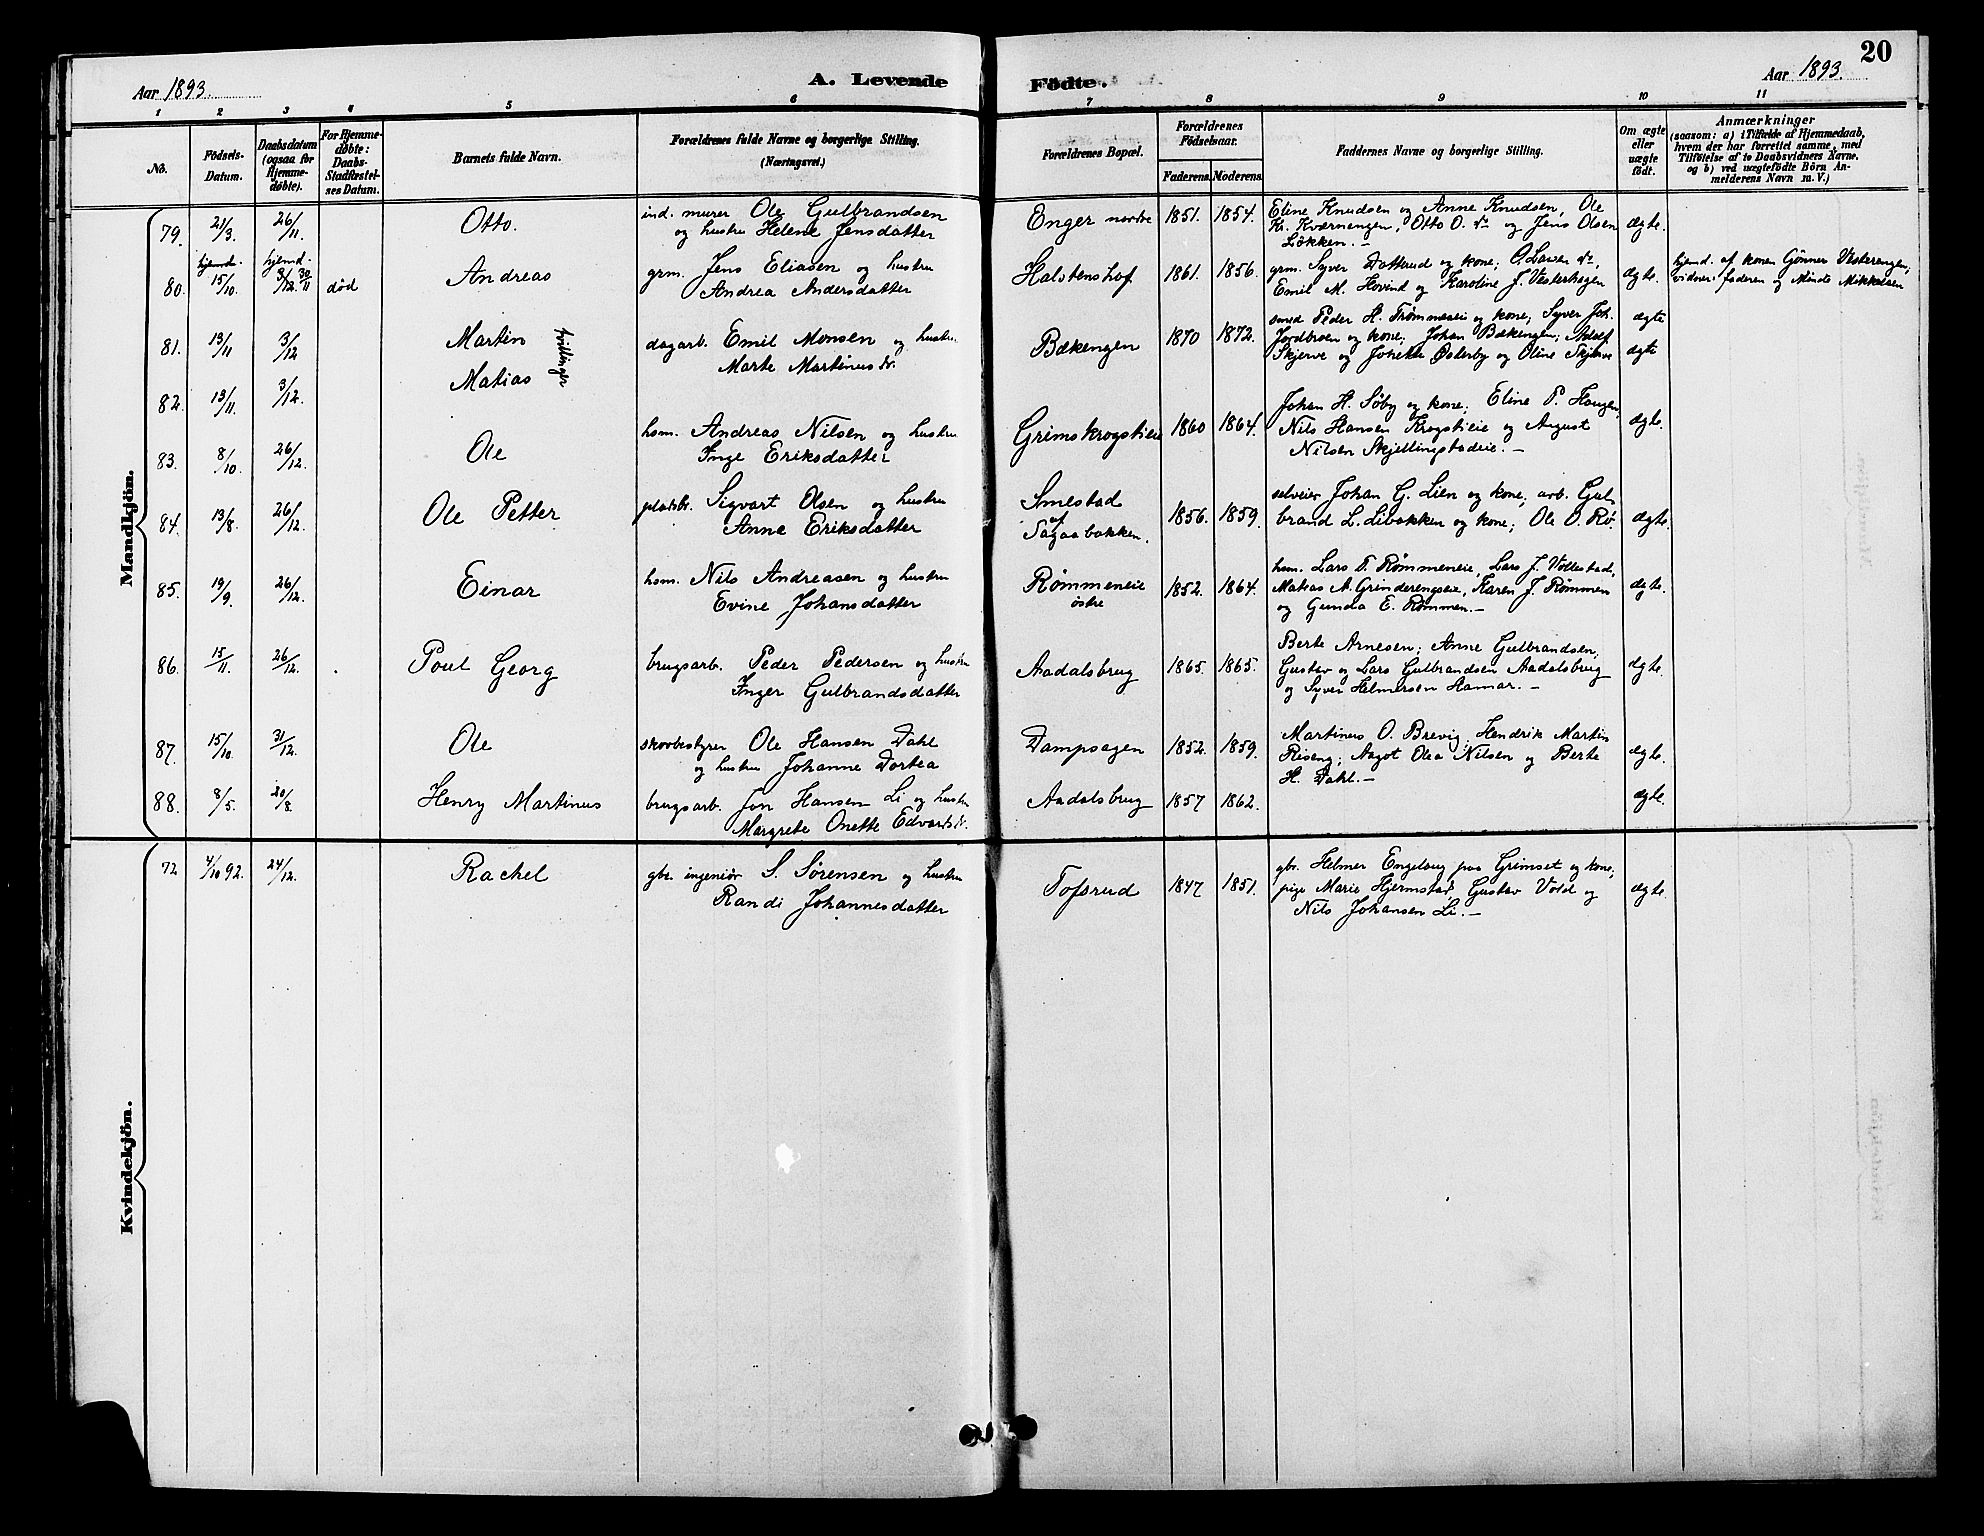 Aar 1893.
A. Levende Födte.
Aar 1893.
20
1 2 3 4 5 6 7 8 9 10 11
No.
Födsels-Datum.
Daabsdatum (ogsaa for Hjemmedøbte).
For Hjemmedøbte: Daabs-Stadfæstelses Datum.
Barnets fulde Navn.
Forældrenes fulde Navne og borgerlige Stilling. (Næringsvei.)
Forældrenes Bopæl.
Forældrenes Födselsaar.
Faderens. Moderens.
Faddernes Navne og borgerlige Stilling.
Om ægte eller uægte født.
Anmærkninger
(saasom: a) i Tilfælde af Hjemmedaab, hvem der har forrettet samme, med Tilföielse af to Daabsvidners Navne, og b) ved uægtefödte Börn Anmelderens Navn m. V.)
Mandkjön.
79. 21/3. 26/11. Otto. ind. murer Ole Gulbrandsen
og hustru Helene Jensdatter
Enger nordre 1851. 1854. Eline Knudsen og Anne Knudsen, Ole
Kr. Kværnengen, Otto O. og Jens Olsen
Løkken.— ægte.
80. hjemd. 15/10. hjemd. 3/12. 30/11 død Andreas grm. Jens Eliasen og hustru
Andrea Andersdatter
Halstenshof 1861. 1856. grm. Syver Datterud og kone; O. Larsen
Emil M. Hovind og Karoline J. Vesterhagen ægte.
hjemd. af konen Gønner Vesterengen,
vidner: faderen og Minda Mikkelsen
81. 13/11 3/12 Martin tvillinger dagarb. Emil Monsen og hustru
Marte Martinusd.
Bækengen 1870 1872. smed Peder H. Trømmeseie og kone; Syver Joh.
Jordbroen og kone; Johan Bækengen; Adolf
Skjerve og Jonette Østerby og Oline Skjerve ægte
ægte
82. 13/11. 3/12. Matias
83. 8/10. 26/12. Ole hsm. Andreas Nilsen og hustru
Inge Eriksdatter
Grimskrogstieie 1860 1864. Johan H. Søby og kone; Eline P. Haugen,
Nils Hansen Krogstieie og August
Nilsen Skjellingstadeie.— ægte.
84. 13/8. 26/12. Ole Petter pladsbr. Sigvart Olsen og hustru
Anne Eriksdatter
Smestad
af
Sagaabakken. 1856. 1859. selveier Johan G. Lien og kone, arb. Gul-
brand L. Libakken og kone; Ole O. Rø. ægte.
85. 19/9. 26/12. Einar hsm. Nils Andreasen og hustru
Evine Johansdatter
Rømmeneie
østre 1852. 1864. hsm. Lars T. Rømmeneie, Lars J. Vollestad,
Matias A. Grinderengseie, Karen J. Rømmen
og Gunda E. Rømmen.— ægte.
86. 15/11. 26/12. Poul Georg brugsarb. Peder Pedersen og hustru
Inger Gulbrandsdatter
Aadalsbrug 1865. 1865. Berte Arnesen; Anne Gulbrandsen;
Gustav og Lars Gulbrandsen Aadalsbrug
og Syver Helmersen Hamar.— ægte.
87. 15/10. 31/12. Ole skovbestyrer Ole Hansen Dahl
og hustru Johanne Dortea
Dampsagen 1852. 1859. Martinus O. Brevig, Hendrik Martin
Riseng; Aagot Olea Nilsen og Berte
H. Dahl.— ægte.
88. 8/5. 20/8. Henry Martinus brugsarb. Jon Hansen Li og hustru
Margrete Onette Edvardsd.
Aadalsbrug 1857 1862. ægte.
Kvindekjön.
72 4/10 92. 24/12. Rachel gbr. ingeniør S. Sørensen og hustru
Randi Johannesdatter
Tofsrud 1847 1851. gbr. Helmer Engelaug paa Grimset og kone;
pige Marie Hjermstad, Gustav Vold og
Nils Johansen Li.— ægte.